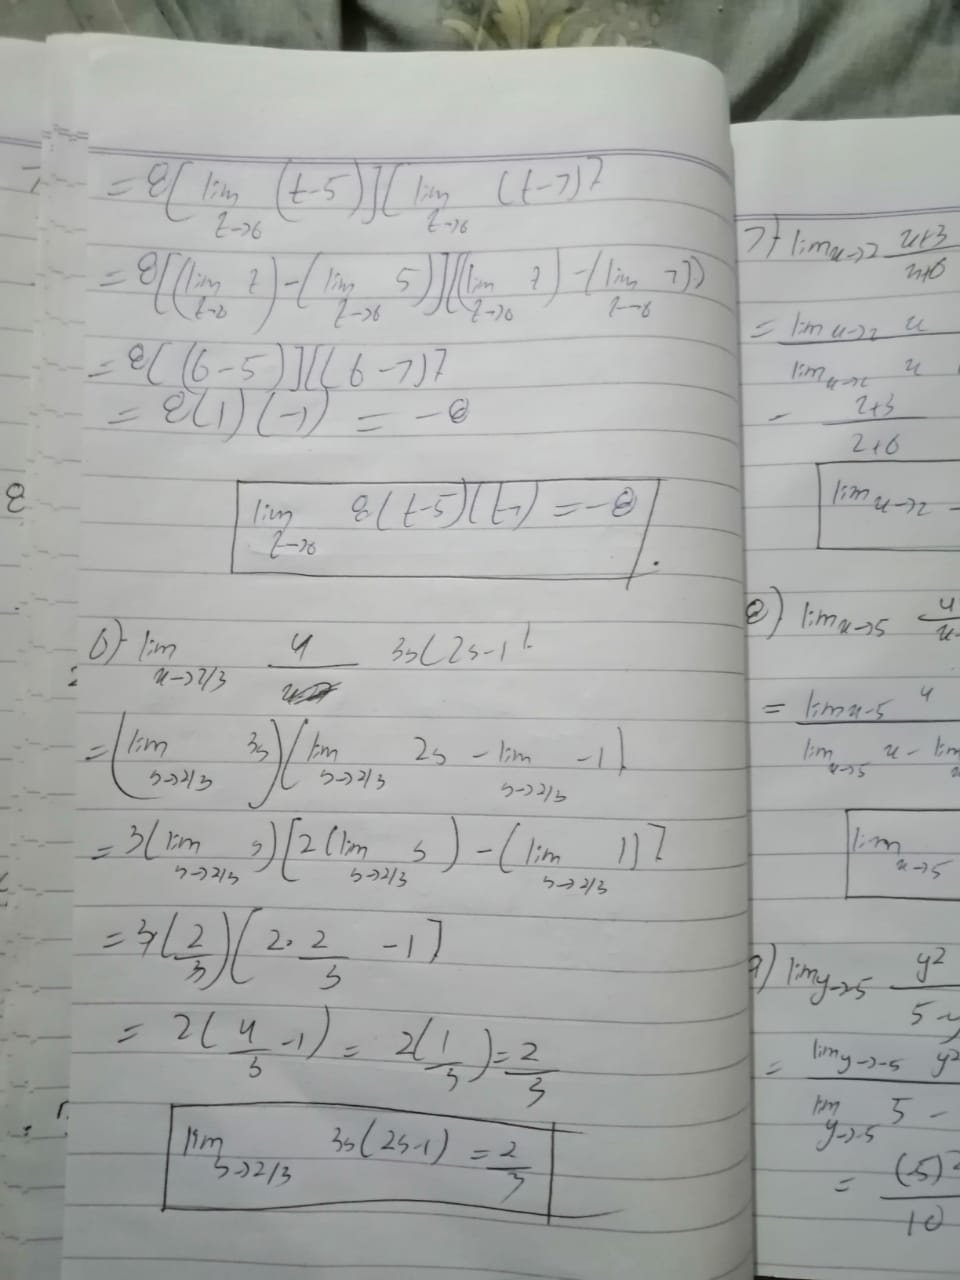 = 8[ lim t→6 (t-5)] [ lim t→6 (t-7)]
= 8[(lim t→6 t) - (lim t→6 5)] [(lim t→6 t) - (lim t→6 7)]
= 8[(6-5)] [(6-7)]
= 8(1)(-1) = -8
lim t→6 8(t-5)(t-7) = -8
6) lim x→2/3 4/ 3s(2s-1)
= (lim s→2/3 3s)(lim s→2/3 2s - lim s→2/3 -1)
= 3(lim s→2/3 s)[2(lim s→2/3 s) - (lim s→2/3 1)]
= 3(2/3)(2·2/3 -1]
= 2(4/3 -1) = 2(1/3) = 2/3
lim s→2/3 3s(2s-1) = 2/3
8
7) lim x→2 x+3/x+6
= lim x→2 x
lim x→2 x
= 2+3/2+6
lim x→2
8) lim x→5 4/x-
= lim x-5 4
lim x→5 x - lim
lim x→5
9) lim y→-5 y²/5-y
= lim y→-5 y²
lim y→-5 5 -
= (-5)²/10